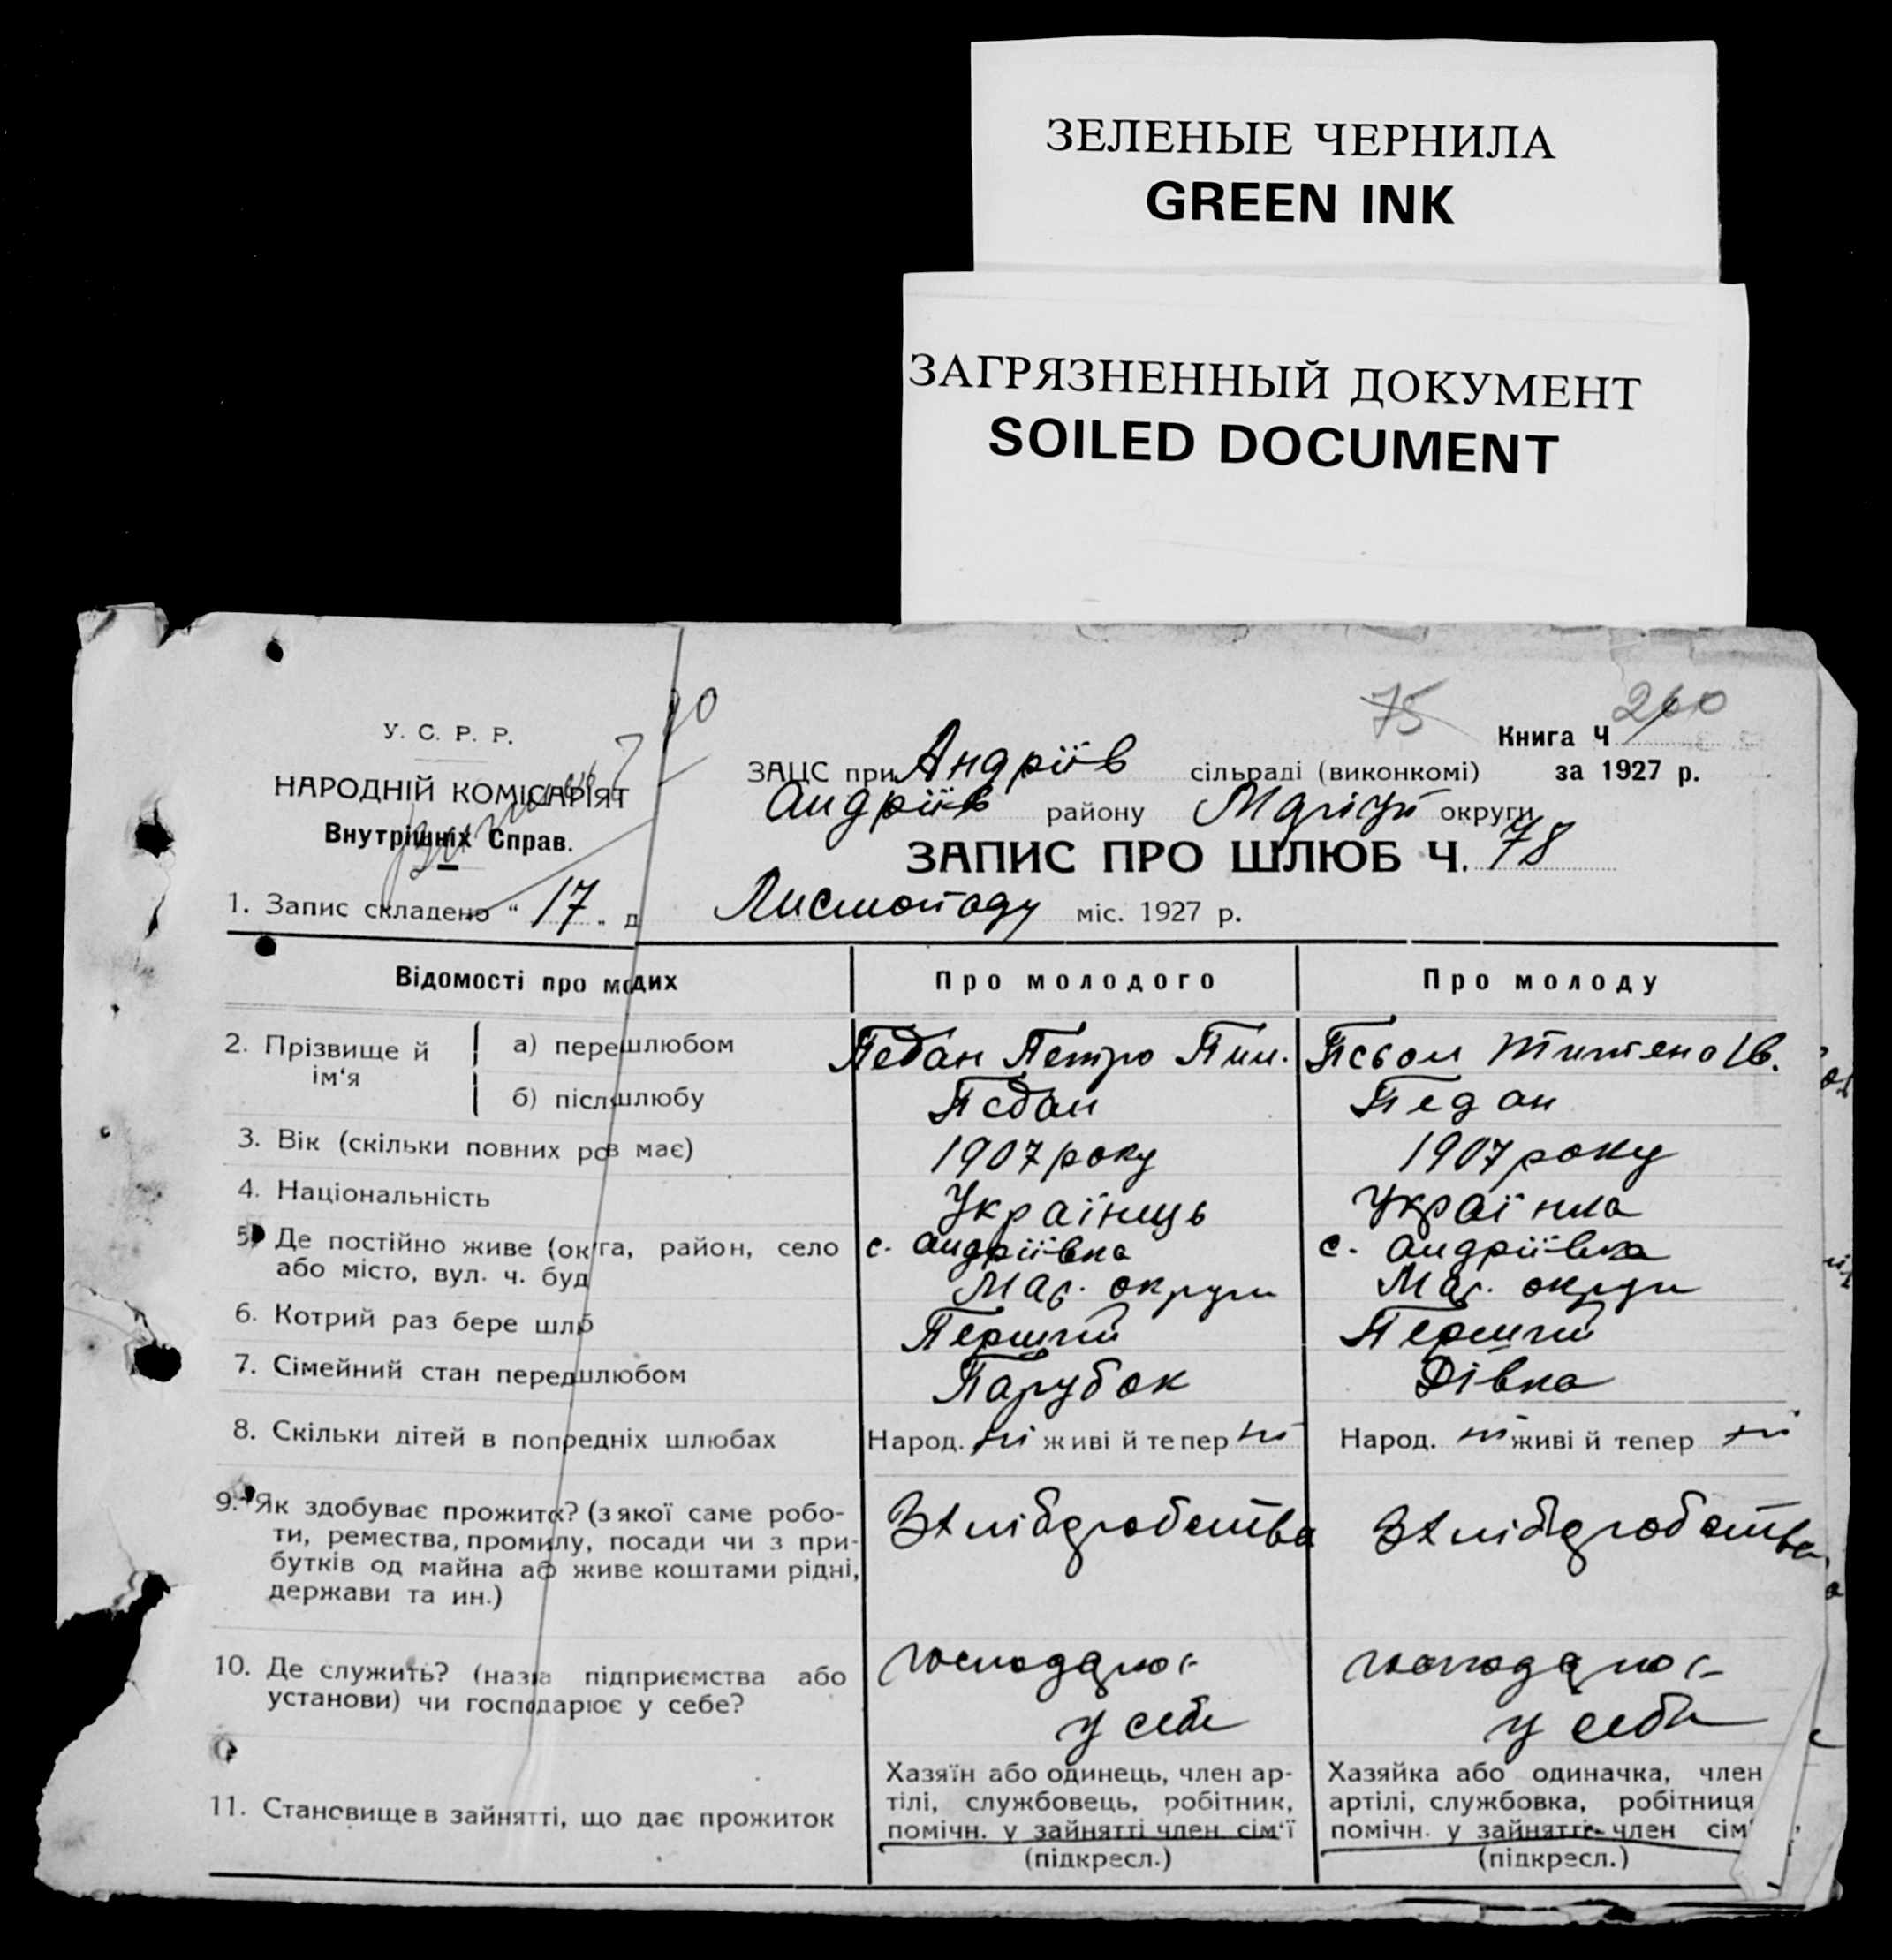 ЗЕЛЕНЫЕ ЧЕРНИЛА
GREEN INK
ЗАГРЯЗНЕННЫЙ ДОКУМЕНТ
SOILED DOCUMENT
У. С. Р. Р.
НАРОДНІЙ КОМІСАРІЯТ
Внутрішніх Справ.
75
260
Книга Ч
ЗАЦС при Андріїв сільраді (виконкомі) за 1927 р.
Андріїв району округи
ЗАПИС ПРО ШЛЮБ Ч. 78
1. Запис складено "17" д Листопаду міс. 1927 р.
Відомості про мдих Про молодого Про молоду
2. Прізвище й ім'я а) пере шлюбом Педан Петро Пим. Псьом Титяно Ів.
б) післ шлюбу Педан Педан
3. Вік (скільки повних ро в має) 1907 року 1907 року
4. Національність Українець Українка
5. Де постійно живе (ок га, район, село с. Андріївка с. Андріївка
або місто, вул. ч. буд Мар. округи Мар. округи
6. Котрий раз бере шлб Перший Перший
7. Сімейний стан перед шлюбом Парубок Дівка
8. Скільки дітей в попредніх шлюбах Народ. ні живі й тепер ні Народ. ні живі й тепер ні
9. Як здобуває прожитк? (з якої саме робо-
ти, ремества, промилу, посади чи з при-
бутків од майна аб живе коштами рідні,
держави та ин.)
Зхлібдробства Зхлібдробства
10. Де служить? (назва підприємства або
установи) чи господарює у себе?
господарює господарює
у себе у себе
11. Становище в зайнятті, що дає прожиток
Хазяїн або одинець, член ар-
тілі, службовець, робітник,
помічн. у зайнятті член сім'ї
(підкресл.)
Хазяйка або одиначка, член
артілі, службовка, робітниця
помічн. у зайнятті член сім'
(підкресл.)